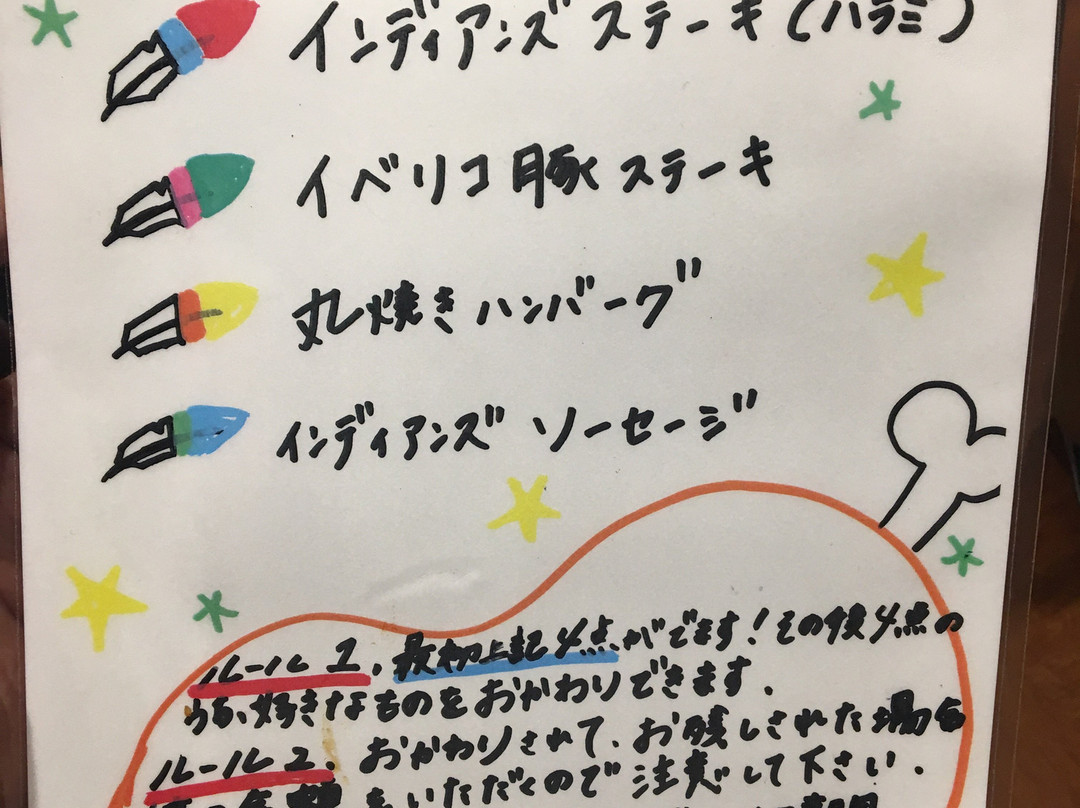 インディアンズ ステーキ(ハラミ)
イベリコ豚ステーキ
丸焼きハンバーグ
インディアンズ ソーセージ
ルール1、最初上記4点がでます!その後4点の
うち、好きなものをおかわりできます.
ルール2、おかわりされて、お残しされた場合
をいただくので注意して下さい.